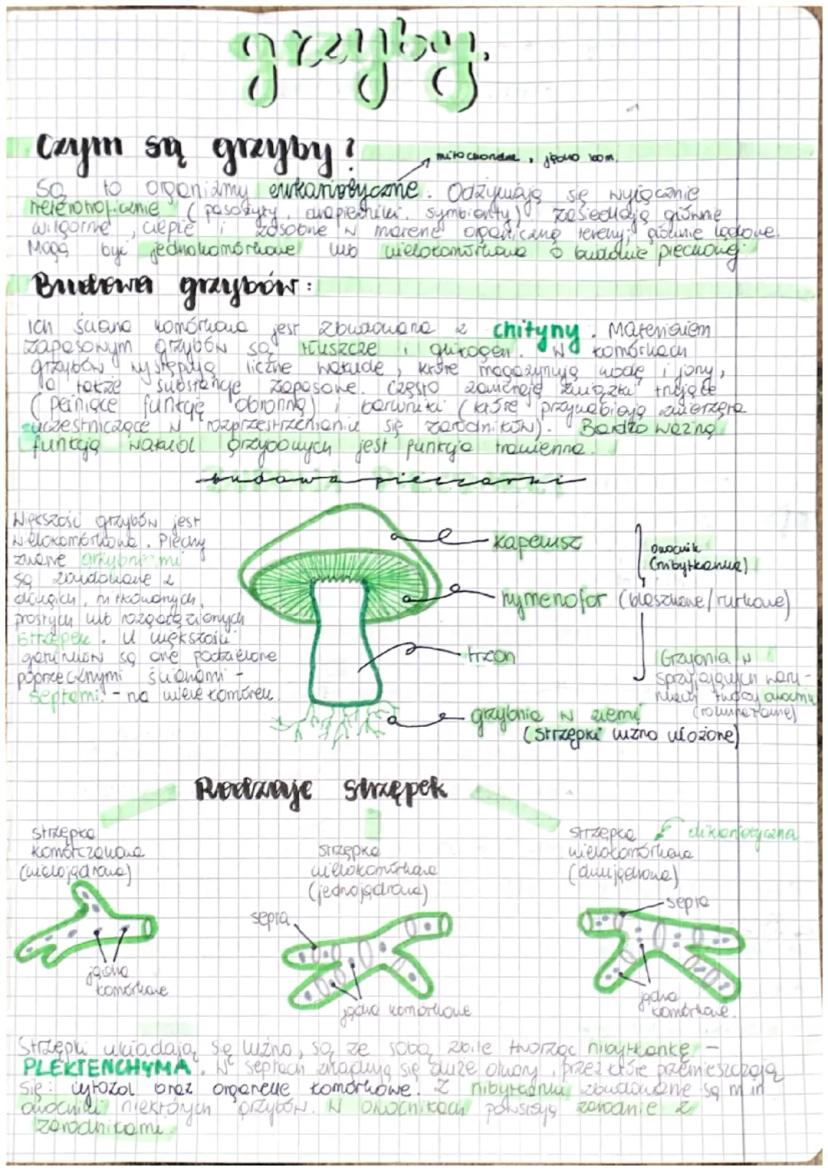 grzyby.
Czym są grzyby?
mitochondria, jądro kom.
Są to organizmy eukariotyczne. Odżywiają się wyłącznie
heterotroficznie (pasożyty, saprofity, symbionty) zasiedlają głównie
wilgotne, ciepłe i zasobne w materię organiczną tereny głównie lądowe.
Mogą być jednokomórkowe lub wielokomórkowe o budowie plechowej.
Budowa grzybów:
Ich ściana komórkowa jest zbudowana z chityny. Materiałem
zapasowym grzybów są tłuszcze i glikogen. W komórkach
grzybów występują liczne wakuole, które magazynują wodę i jony,
a także substancje zapasowe. Często zawierają związki trujące
(pełniące funkcję obronną) i barwniki (które przywabiają zwierzęta
uczestniczące w rozprzestrzenianiu się zarodników). Bardzo ważną
funkcją wakuol grzybowych jest funkcja trawienna.
budowa pieczarki
Większość grzybów jest
wielokomórkowa. Plechy
zwane grzybniami
są zbudowane z
długich, nitkowanych,
prostych lub rozgałęzionych
strzępek. U większości
gatunków są one podzielone
poprzecznymi ścianami -
septami - na wiele komórek
kapelusz
hymenofor (blaszkowe/rurkowe)
trzon
grzybnia w ziemi
(strzępki luźno ułożone)
owocnik
(nibytkanka)
(Grzybnia w
sprzyjających waru-
nkach tworzy owocniki
Rodzaje strzępek
strzępka
komórczakowa
(wielojądrowa)
jądra
komórkowe
strzępka
wielokomórkowa
(jednojądrowa)
septa
jądra komórkowe
strzępka
wielokomórkowa
(dwujądrowa)
dikariotyczna
septa
jądra
komórkowe.
Strzępki układają się luźno, są ze sobą zbite tworząc nibytkankę -
PLEKTENCHYMA. W septach znajdują się duże otwory, przez które przemieszczają
się: cytozol oraz organelle komórkowe. Z nibytkanki zbudowane są m.in
owocniki niektórych grzybów. W owocnikach powstają zarodnie z
zarodnikami.